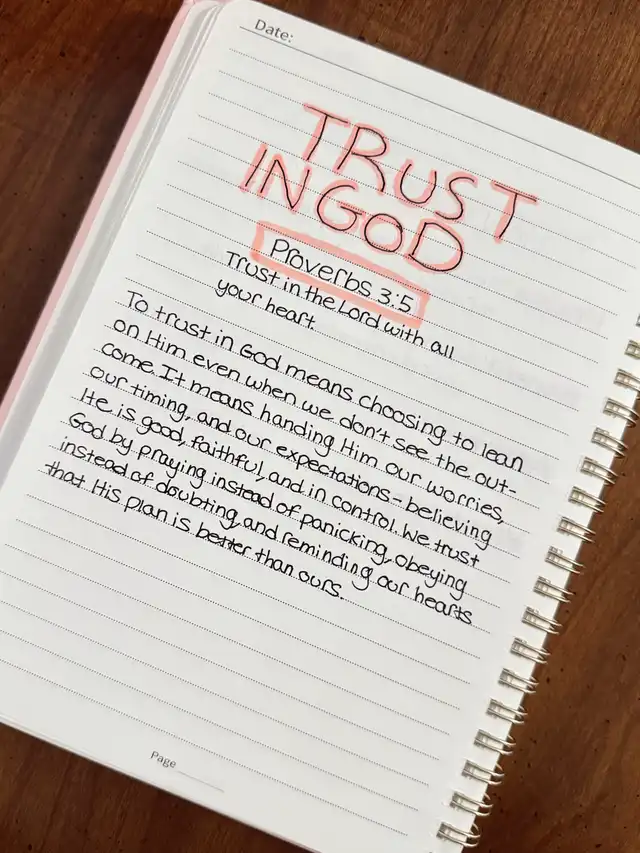 Date:
TRUST
IN GOD
Proverbs 3:5
Trust in the Lord with all
your heart.
To trust in God means choosing to lean
on Him even when we don't see the out-
come. It means handing Him our worries,
our timing, and our expectations - believing
He is good, faithful, and in control. We trust
God by praying instead of panicking, obeying
instead of doubting, and reminding our hearts
that His plan is better than ours.
Page